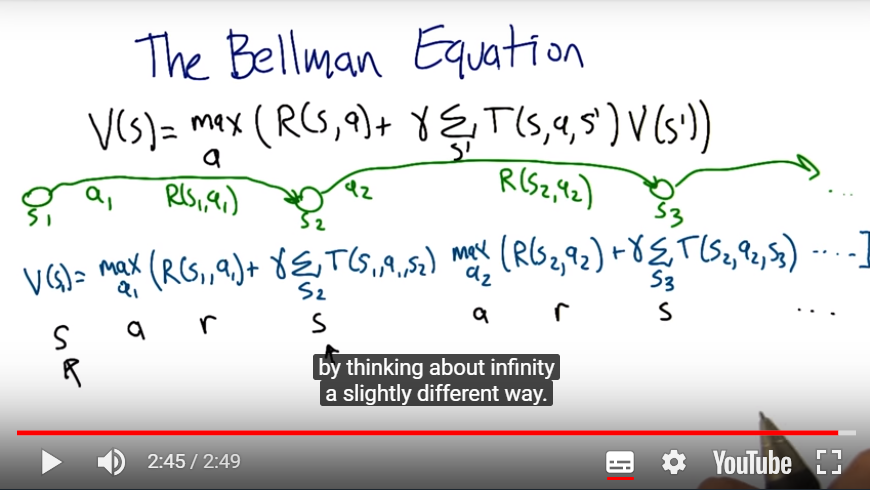 The Bellman Equation
V(s)= max (R(s,a)+ γ Σ T(s,a,s') V(s'))
a s'
s₁ a₁ R(s₁,a₁) s₂ a₂ R(s₂,a₂) s₃ ...
V(s₁)= max (R(s₁,a₁)+ γ Σ T(s₁,a₁,s₂) max (R(s₂,a₂)+γ Σ T(s₂,a₂,s₃) ....]
a₁ s₂ a₂ s₃
s a r s a r s ...
by thinking about infinity
a slightly different way.
2:45 / 2:49 YouTube